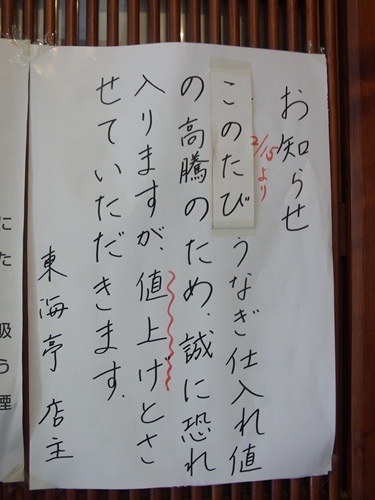 お知らせ
2/15より
このたびうなぎ仕入れ値
の高騰のため、誠に恐れ
入りますが、値上げとさ
せていただきます.
東海亭 店主
にた
吸う煙